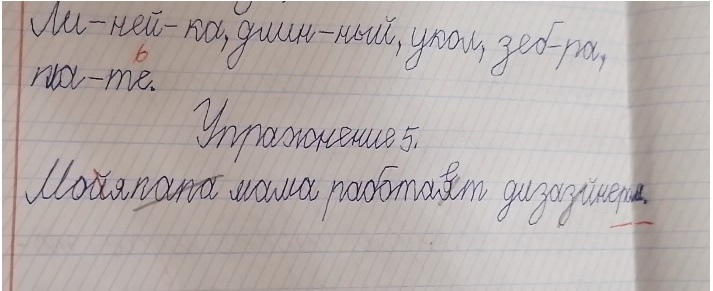 Ли-ней-ка, длин-ный, укол, зеб-ра,
па-те.
Упражнение 5.
Мойяпапа мама работает дизазйнером.